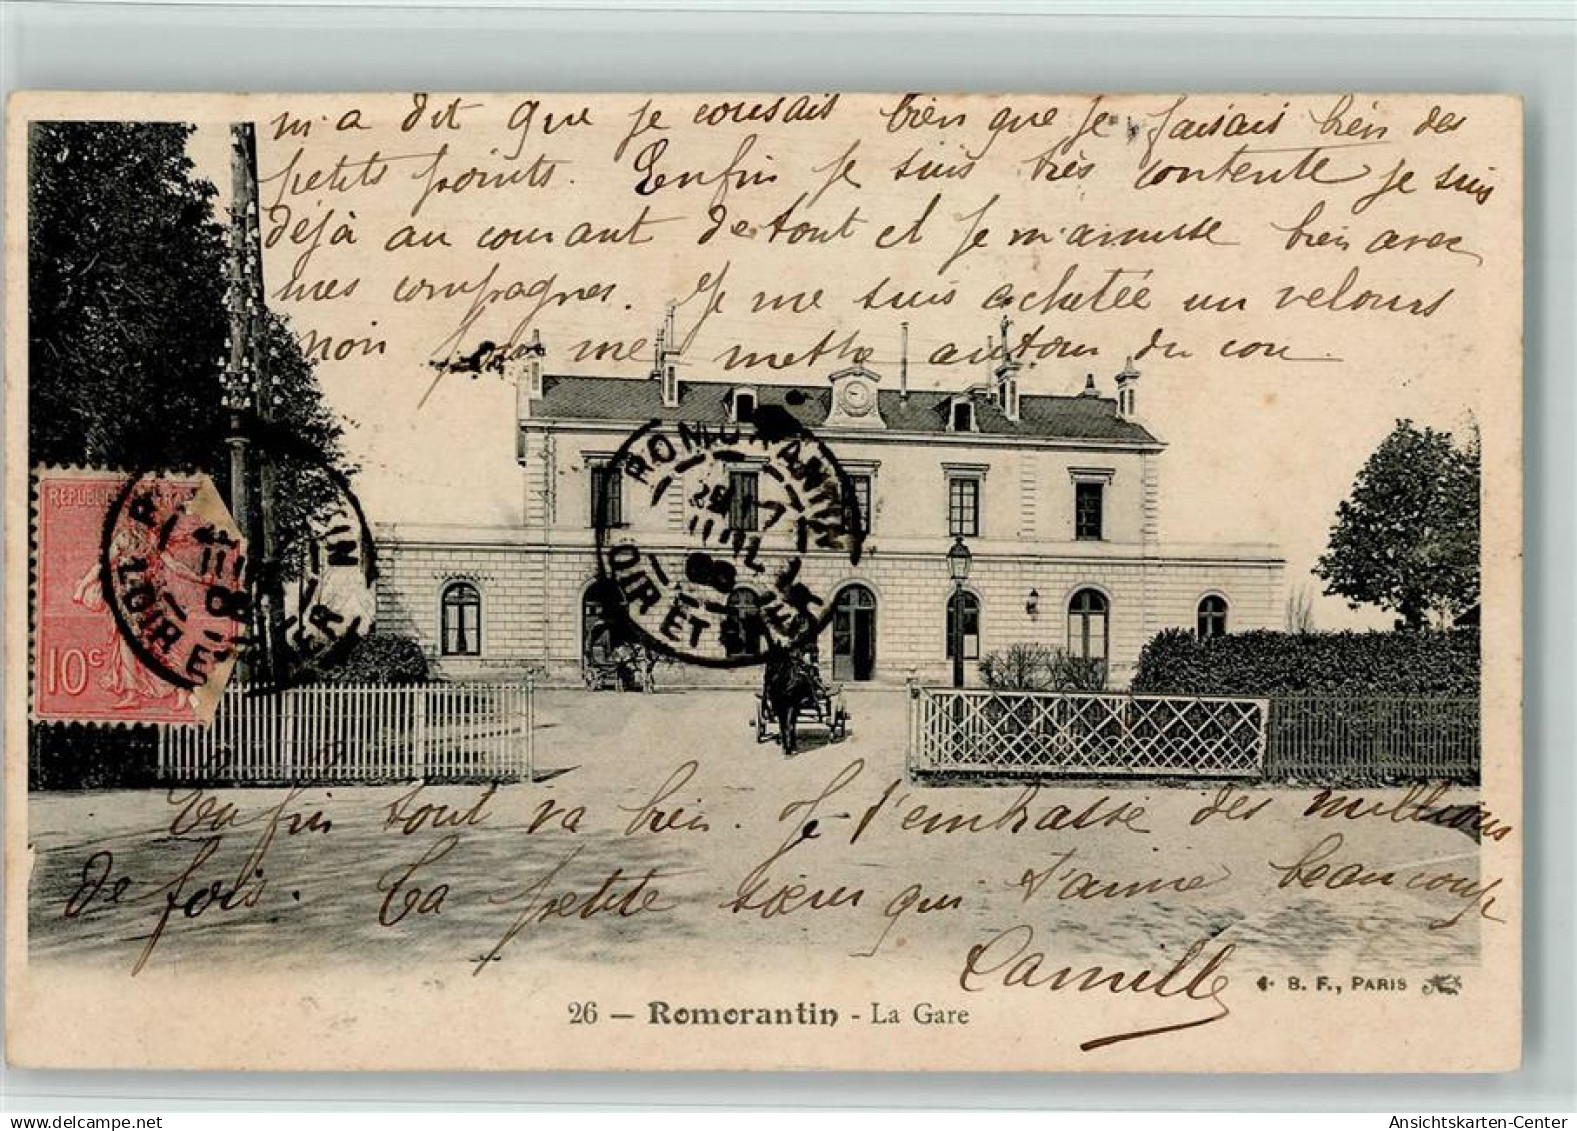 m'a dit que je cousais bien que je faisais bien des
petits points. Enfin je suis très contente je suis
déjà au courant de tout et je m'amuse bien avec
mes compagnes. Je me suis achetée un velours
noir pour me mettre autour du cou.
ROMORANTIN
LOIR ET CHER
REPUBLIQUE
10c
LOIR ET CHER
Enfin tout va bien. Je t'embrasse des millions
de fois. Ta petite sœur qui t'aime beaucoup
Camille
B. F., PARIS
26 — Romorantin - La Gare
Ansichtskarten-Center